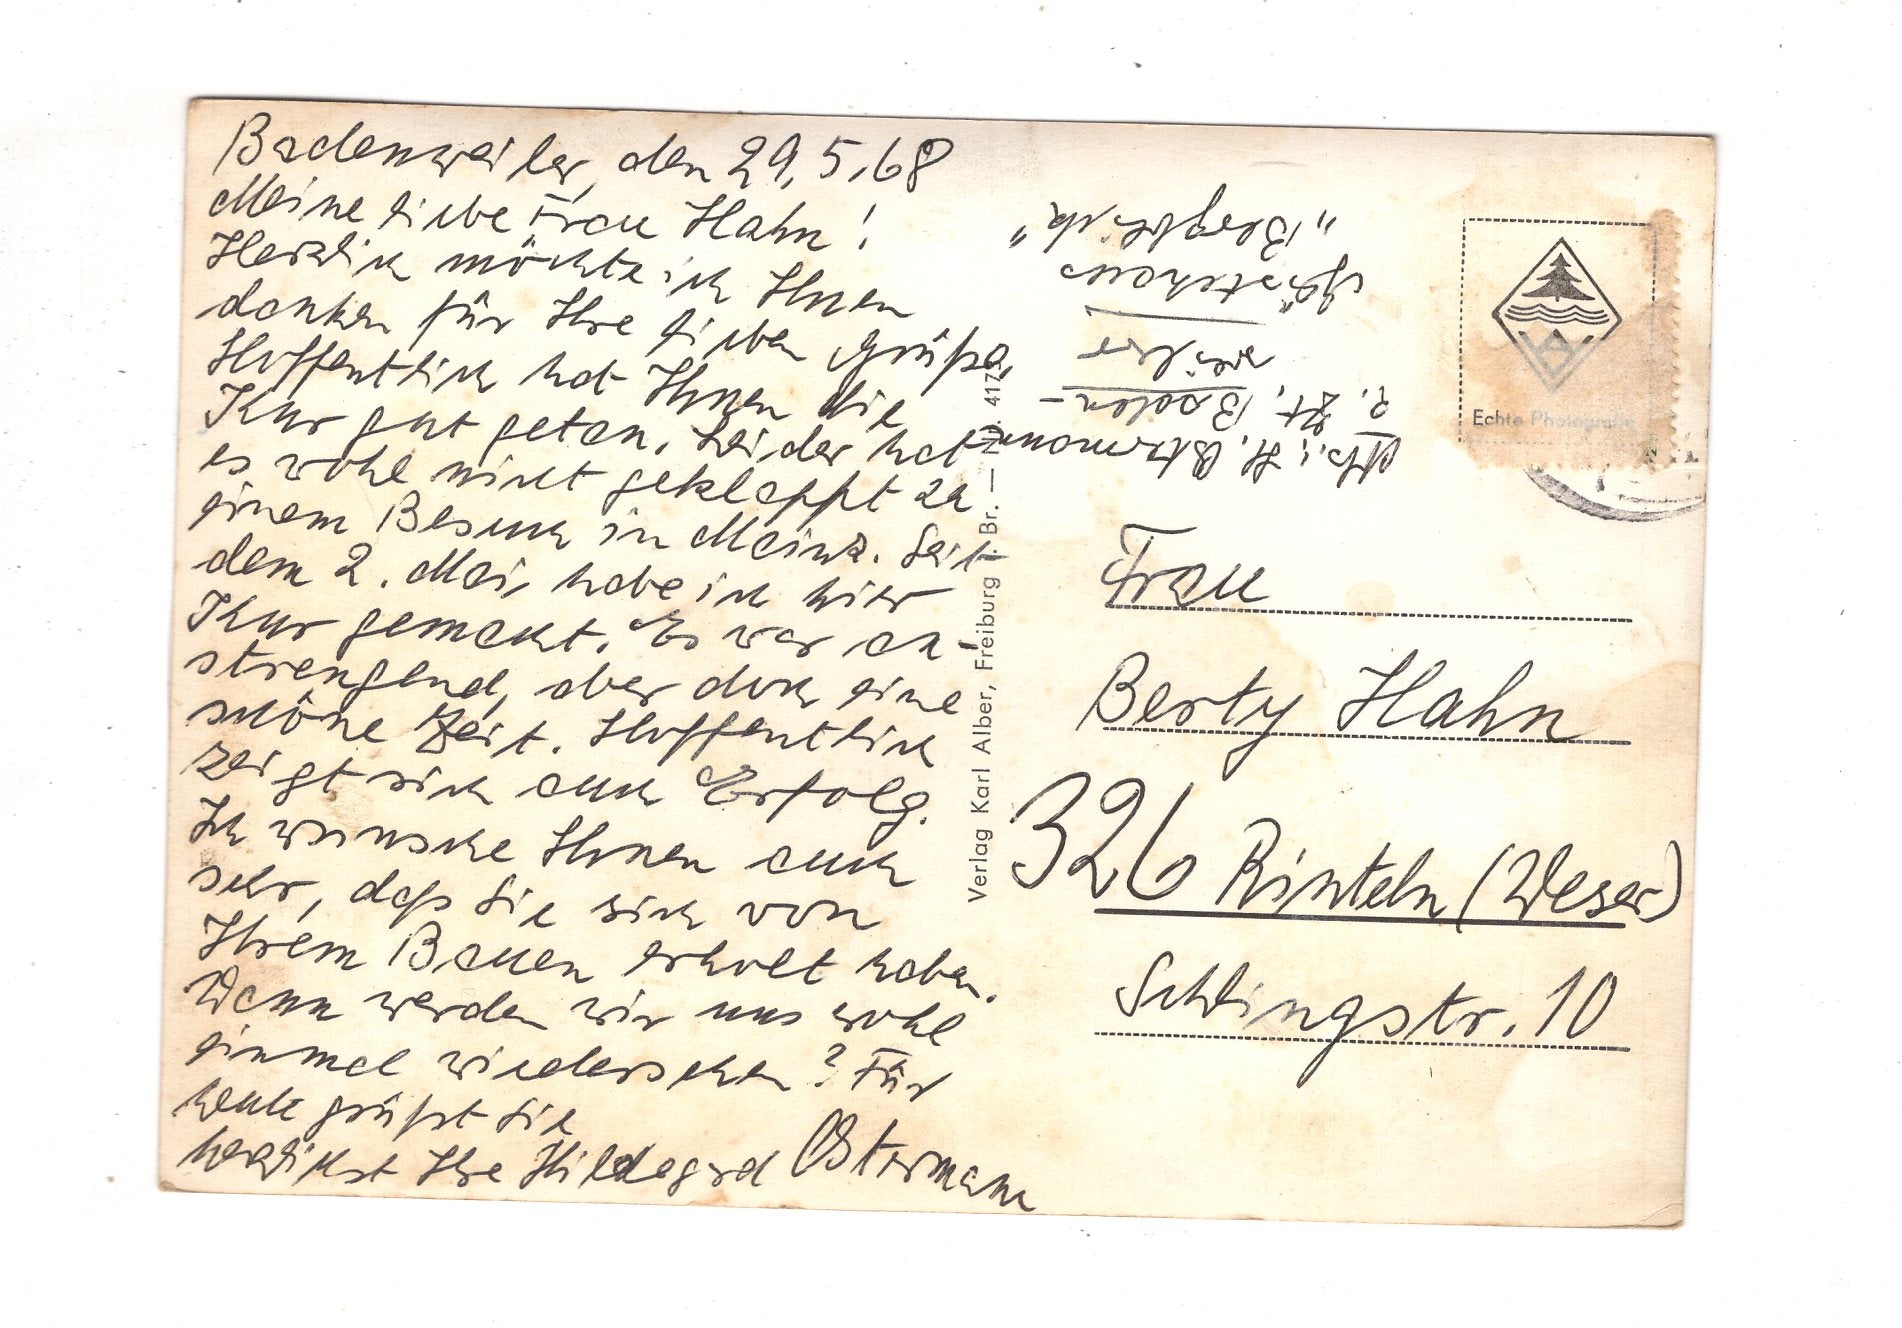 Badenweiler, den 29.5.68
Meine liebe Frau Hahn!
Herzlich möchte ich Ihnen
danken für Ihre lieben Grüße.
Hoffentlich hat Ihnen die
Kur gut getan. Leider hat
es wohl nicht geklappt zu
einem Besuch in Mainz. Seit
dem 2. Mai habe ich hier
Kur gemacht. Es war an-
strengend, aber doch eine
schöne Zeit. Hoffentlich
zeigt sich auch Erfolg.
Ich wünsche Ihnen auch
sehr, daß Sie sich von
Ihrem Bauen erholt haben.
Wann werden wir uns wohl
einmal wiedersehen? Für
heute grüßt Sie
herzlichst Ihre Hildegard Ostermann
Verlag Karl Alber, Freiburg i. Br. — Nr. 417
Abs.: H. Ostermann
z. Zt. Baden-
weiler
Gästehaus
„Bergblick“
Echte Photografie
Frau
Berty Hahn
326 Rinteln (Weser)
Schlingstr. 10